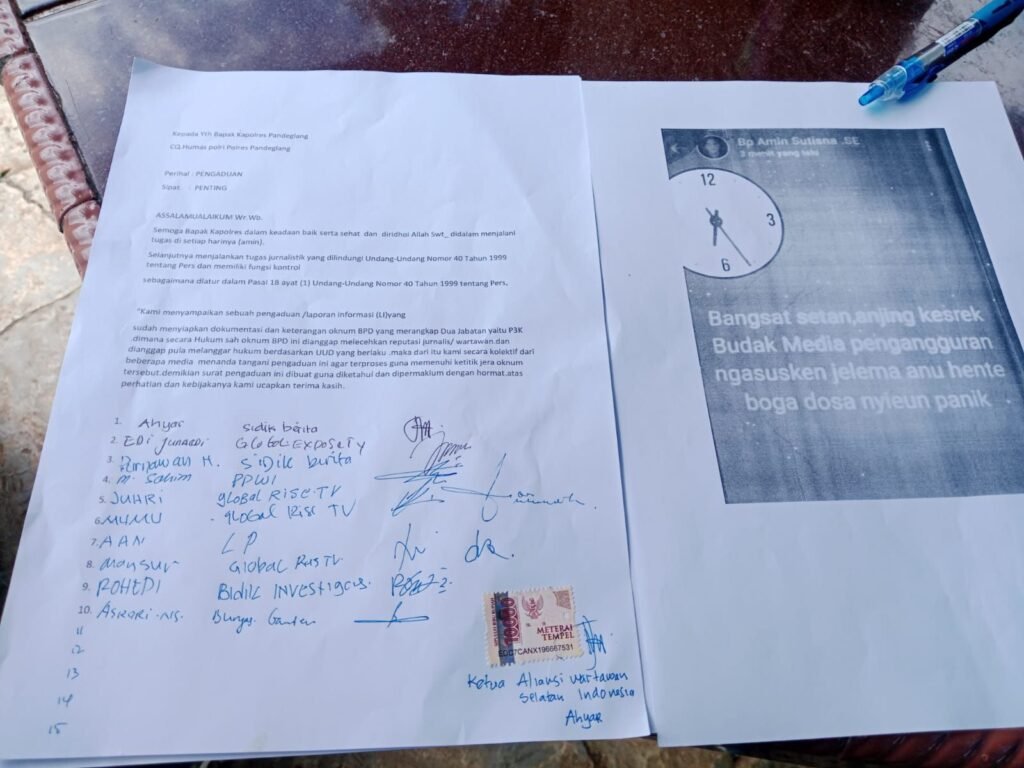 Kepada Yth Bapak Kapolres Pandeglang
CQ.Humas polri Polres Pandeglang
Perihal : PENGADUAN
Sipat : PENTING
ASSALAMUALAIKUM.Wr.Wb.
Semoga Bapak Kapolres dalam keadaan baik serta sehat dan diridhoi Allah Swt_ didalam menjalani
tugas di setiap harinya (amin).
Selanjutnya menjalankan tugas jurnalistik yang dilindungi Undang-Undang Nomor 40 Tahun 1999
tentang Pers dan memiliki fungsi kontrol
sebagaimana diatur dalam Pasal 18 ayat (1) Undang-Undang Nomor 40 Tahun 1999 tentang Pers,
"Kami menyampaikan sebuah pengaduan /laporan informasi (LI)yang
sudah menyiapkan dokumentasi dan keterangan oknum BPD yang merangkap Dua Jabatan yaitu P3K
dimana secara Hukum sah oknum BPD ini dianggap melecehkan reputasi jurnalis/ wartawan.dan
dianggap pula melanggar hukum berdasarkan UUD yang berlaku .maka dari itu kami secara kolektif dari
beberapa media menanda tangani pengaduan ini agar terproses guna memenuhi ketitik jera oknum
tersebut.demikian surat pengaduan ini dibuat guna diketahui dan dipermaklum dengan hormat.atas
perhatian dan kebijakanya kami ucapkan terima kasih.
1. Ahyar sidik berita
2. EDI JUNAEDI GLobal EXPOSETY
3. H. SIDIK berita
4. M. Sahim PPWI
5. JUHRI gLOBAL RISE TV
6. MUMU gLOGAL RISE TV
7. AAN LP
8. Mansur GLOBAL RISTV
9. ROHEDI BIDIK INVESTIGASI
10. ASRORI.NS.
11
12
13
14
15
10000
METERAI
TEMPEL
EDC7CANX196667531
Ketua Aliansi wartawan
Selatan Indonesia
Ahyar
Bp Amin Sutisna .SE
3 menit yang lalu
12
3
6
Bangsat setan,anjing kesrek
Budak Media pengangguran
ngasusken jelema anu hente
boga dosa nyieun panik